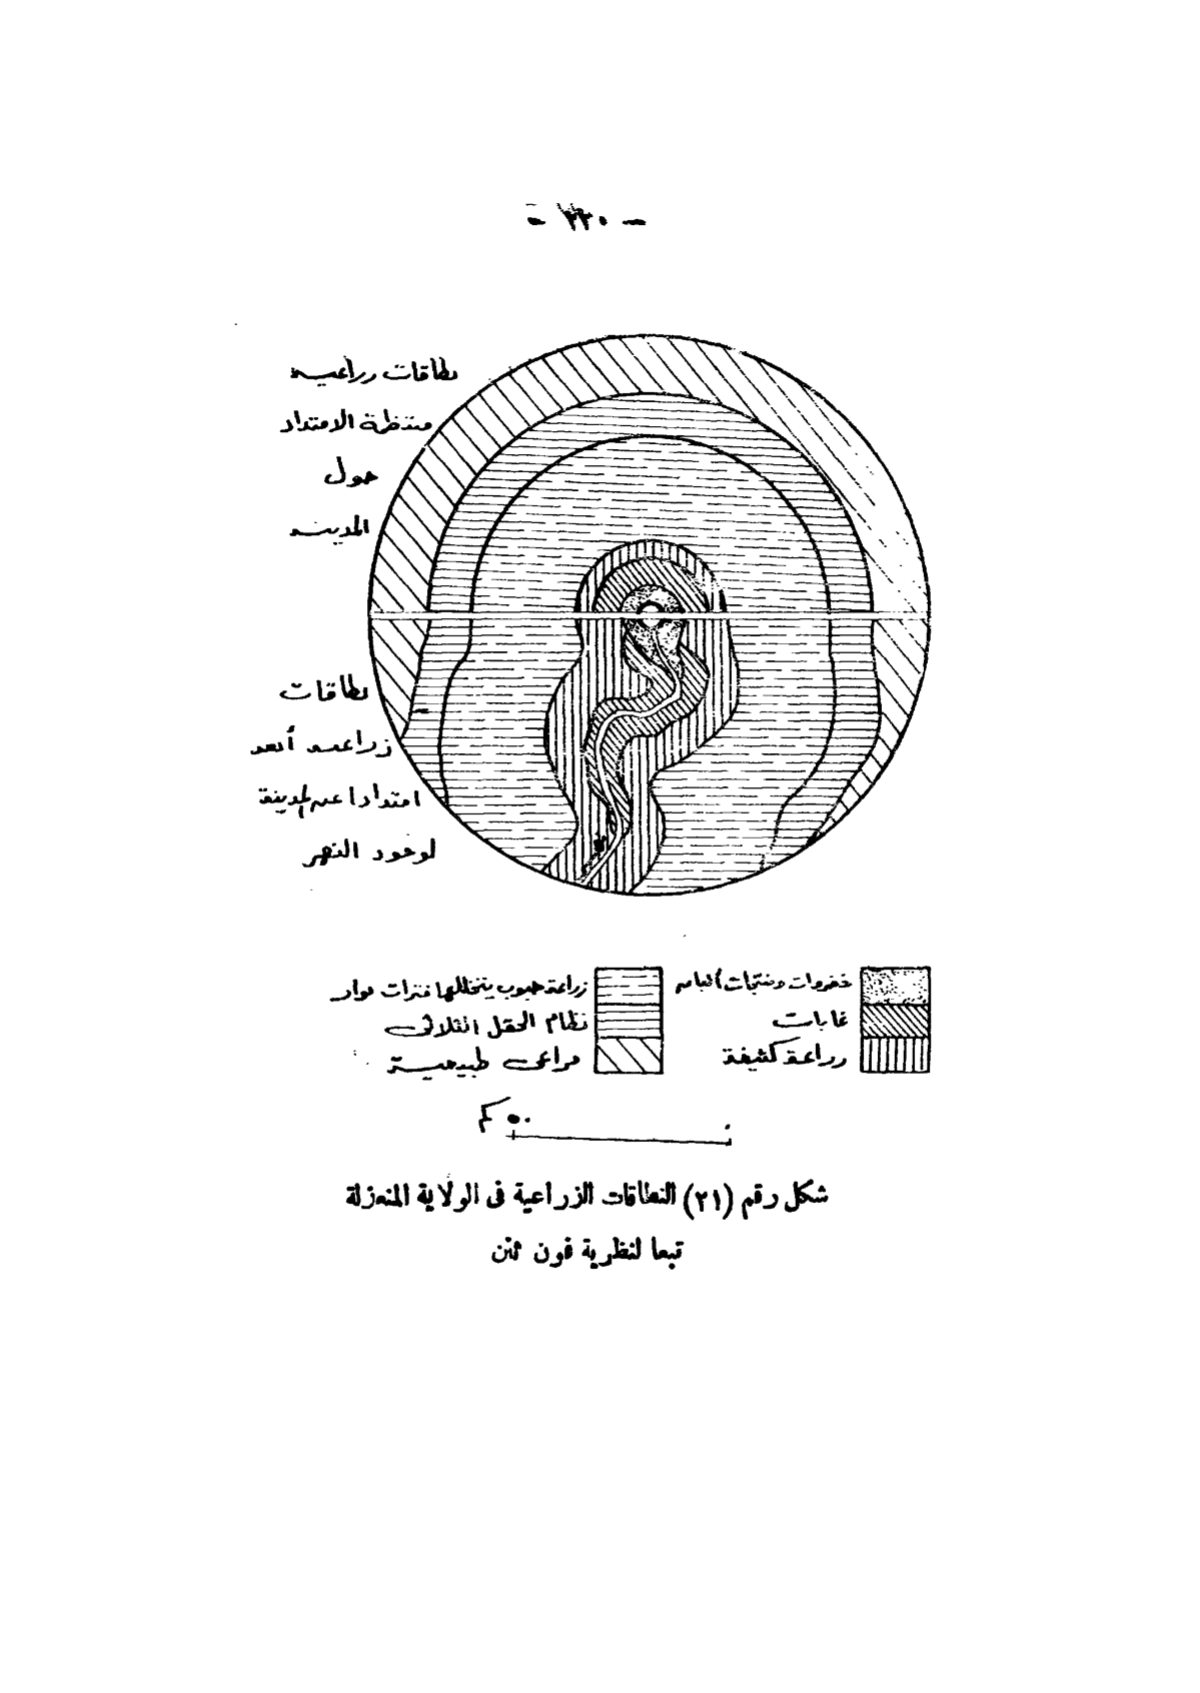 - ٢٢٠ -
نطاقات زراعية
منتظمة الامتداد
حول
المدينه
نطاقات
زراعيه أبعد
امتدادا عن المدينة
لوجود النهر
خضروات ومنتجات ألبان
غابات
زراعة كثيفة
زراعة حبوب يتخللها فترات بوار
نظام الحقل الثلاثى
مراعى طبيعية
٠ ٥٠ كم
شكل رقم (٢١) النطاقات الزراعية فى الولاية المنعزلة
تبعا لنظرية فون ثنن